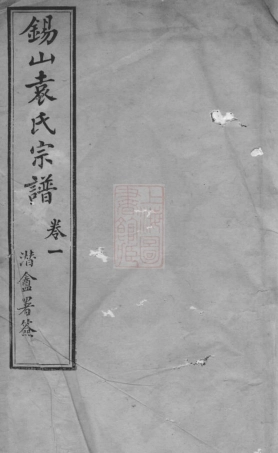 錫山袁氏宗譜
卷一
潛盦署签